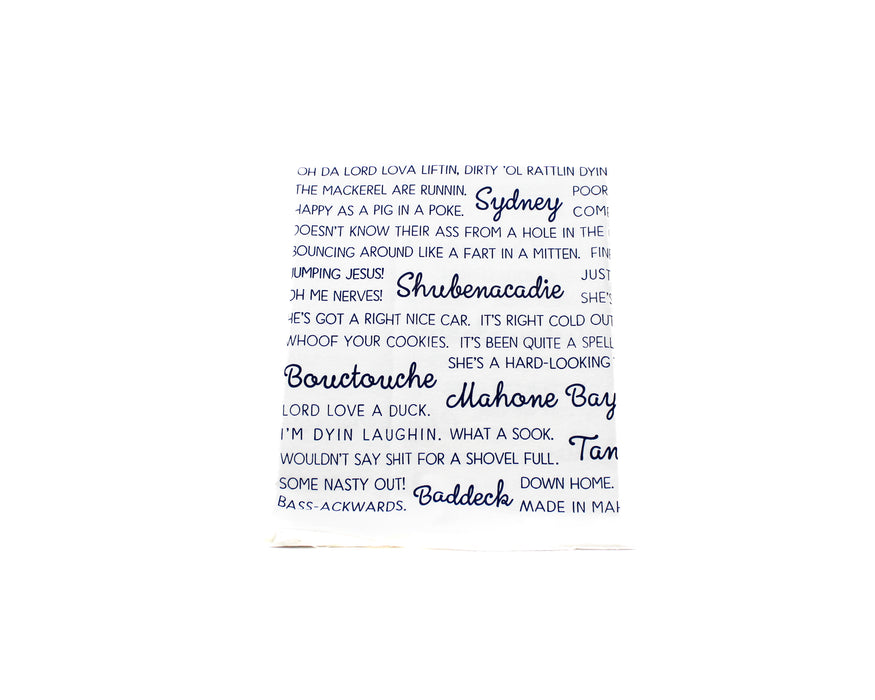 OH DA LORD LOVA LIFTIN, DIRTY 'OL RATTLIN DYIN
THE MACKEREL ARE RUNNIN. Sydney POOR
HAPPY AS A PIG IN A POKE. COME
DOESN'T KNOW THEIR ASS FROM A HOLE IN THE
BOUNCING AROUND LIKE A FART IN A MITTEN. FIN
JUMPING JESUS! Shubenacadie JUST
OH ME NERVES! SHE'S
HE'S GOT A RIGHT NICE CAR. IT'S RIGHT COLD OUT
WHOOF YOUR COOKIES. IT'S BEEN QUITE A SPELL
SHE'S A HARD-LOOKING
Bouctouche Mahone Bay
LORD LOVE A DUCK.
I'M DYIN LAUGHIN. WHAT A SOOK.
WOULDN'T SAY SHIT FOR A SHOVEL FULL. Tan
SOME NASTY OUT! Baddeck DOWN HOME.
BASS-ACKWARDS. MADE IN MAH